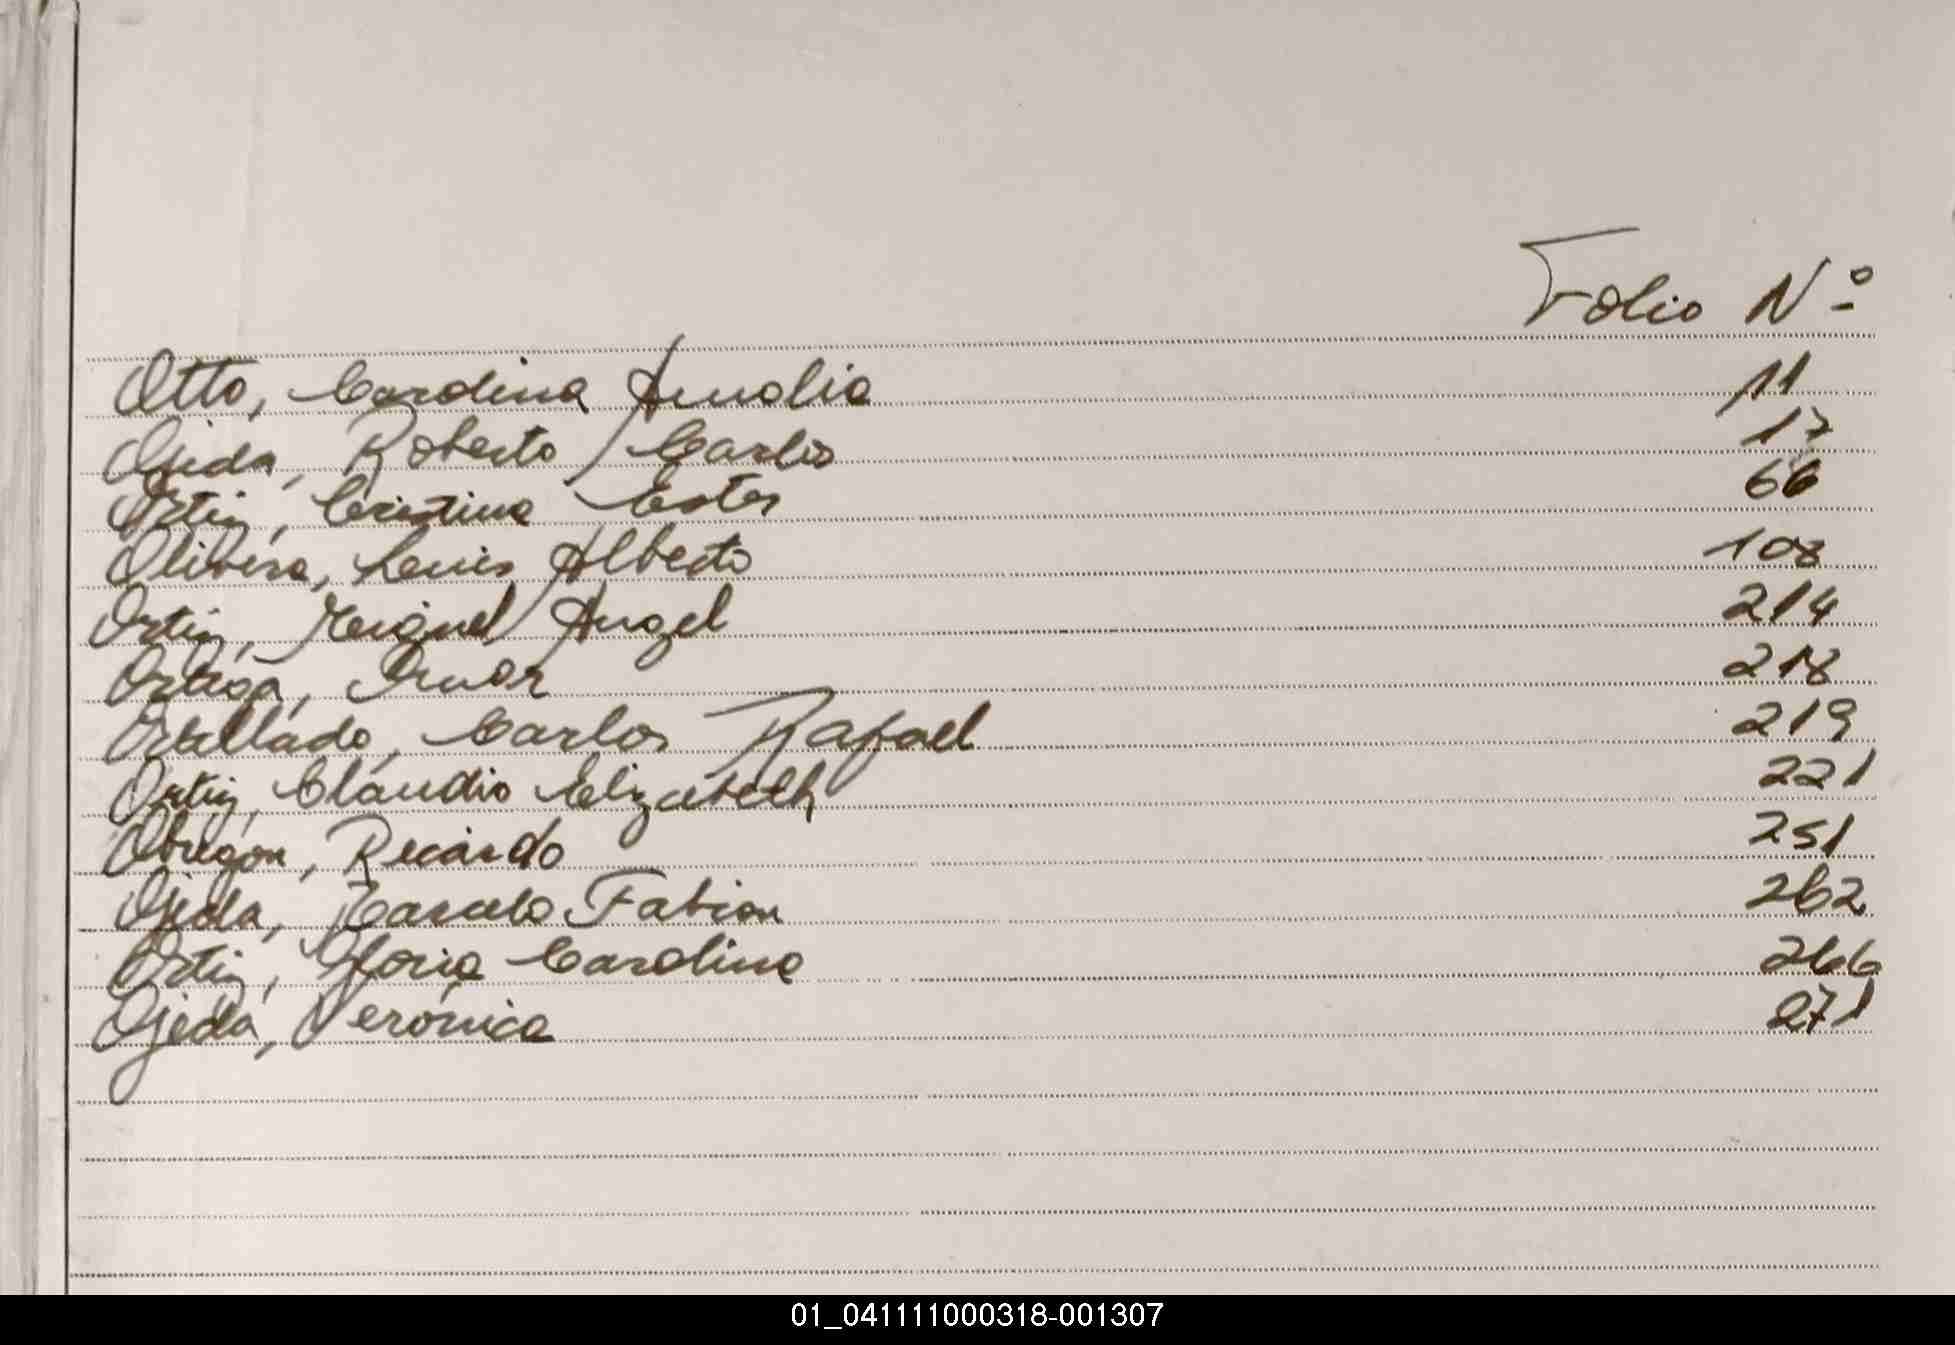 Folio Nº
Otto, Carolina Amalia 11
Ojeda, Roberto Carlos 17
Ortiz, Cristina Ester 66
Olivera, Luis Alberto 108
Ortiz, Miguel Angel 214
Ortega, Omar 218
Ortellado, Carlos Rafael 219
Ortiz, Claudio Elizabeth 221
Obregon, Ricardo 251
Ojeda, Marcelo Fabian 262
Ortiz, Gloria Carolina 266
Ojeda, Verónica 271
01_041111000318-001307